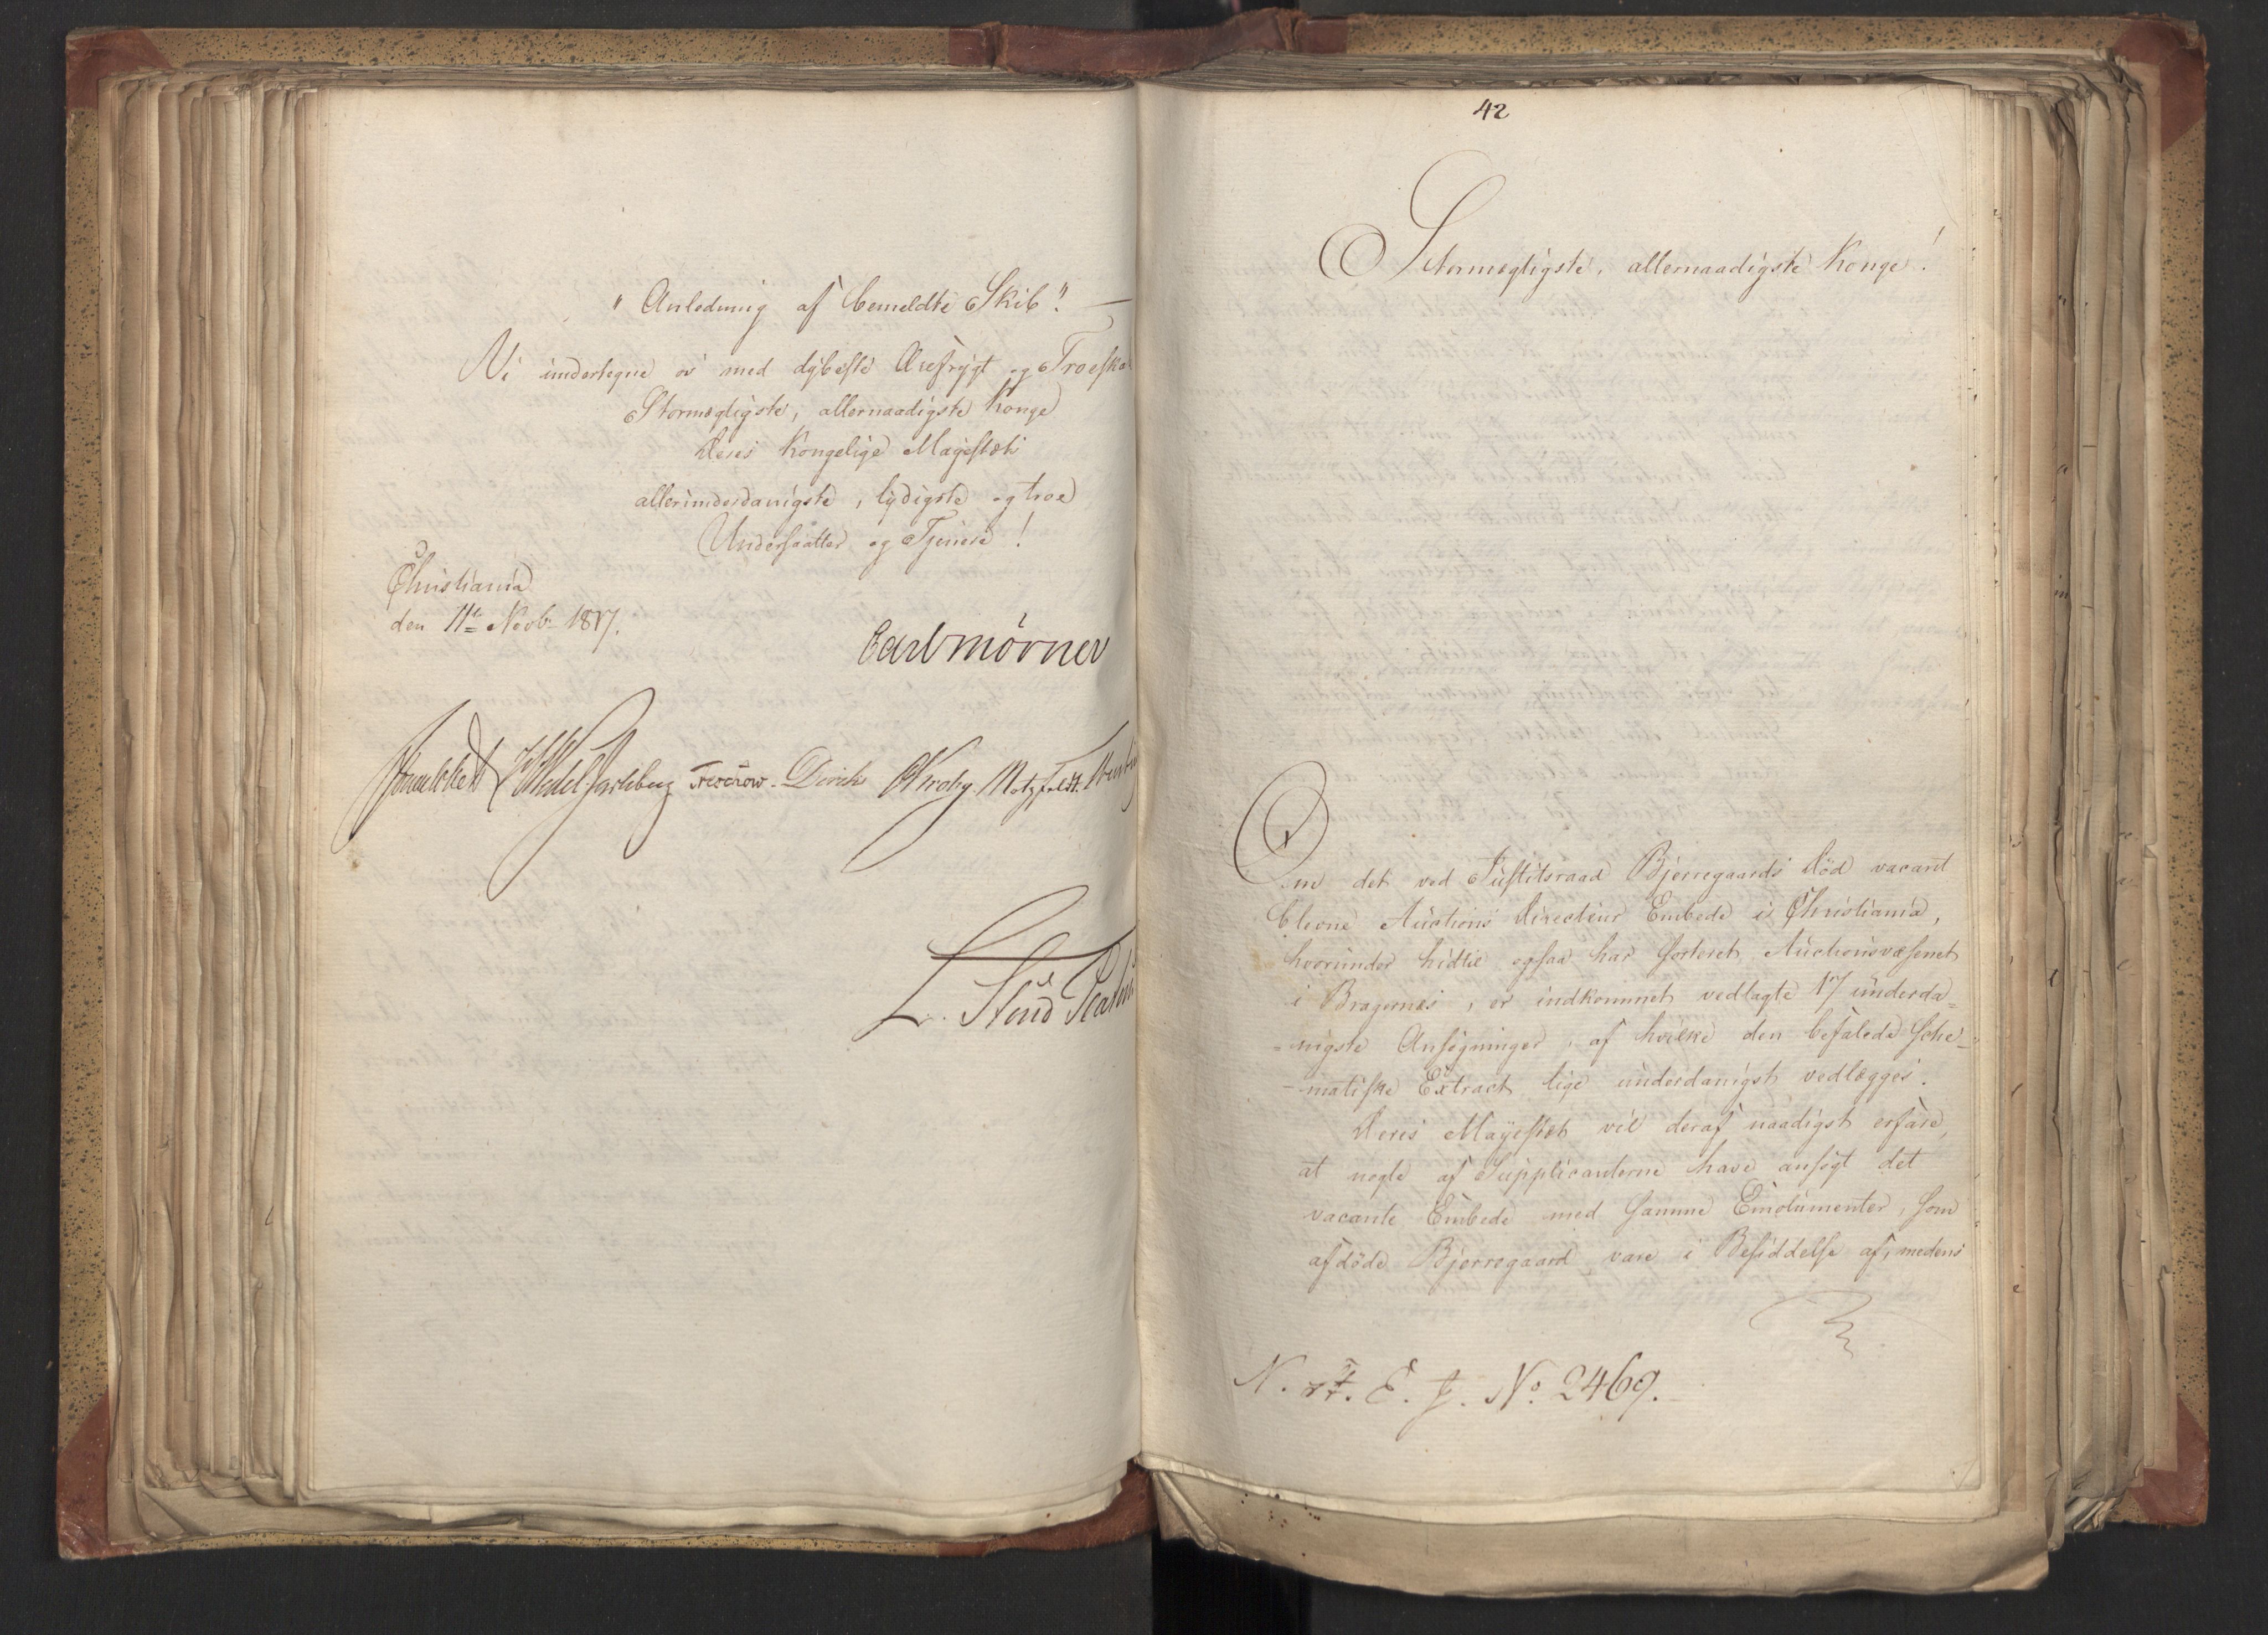 " Anledning af bemeldte Skib". —
Vi undertegne os med dybeste Ærefrygt og Troeska
Stormægtigste, allernaadigste Konge
Deres Kongelige Mayestæts
allerunderdanigste, lydigste og troe
Undersaatter og Tjenere!
Christiania
den 11te Novbr 1817.
Carl mörner
Wedel Jarlsberg Treschow. Diriks Krohg Motzfeldt.
L. Stoud Platou
42
Stormægtigste, allernaadigste Konge!
Om det ved Justitsraad Bjerregaards Död vacant
blevne Auctions Directeur Embede i Christiania,
hvorunder hidtil ogsaa har sorteret Auctionsvæsenet
i Bragernes, er indkommet vedlagte 17 underda=
=nigste Ansögninger, af hvilke den befalede sche=
=matiske Extract lige underdanigst vedlægges.
Deres Mayestæt vil deraf naadigst erfare,
at nogle af Supplicanterne have ansögt det
vacante Embede med samme Emolumenter, som
afdöde Bjerregaard vare i Besiddelse af, medens
E. J. No. 2469.